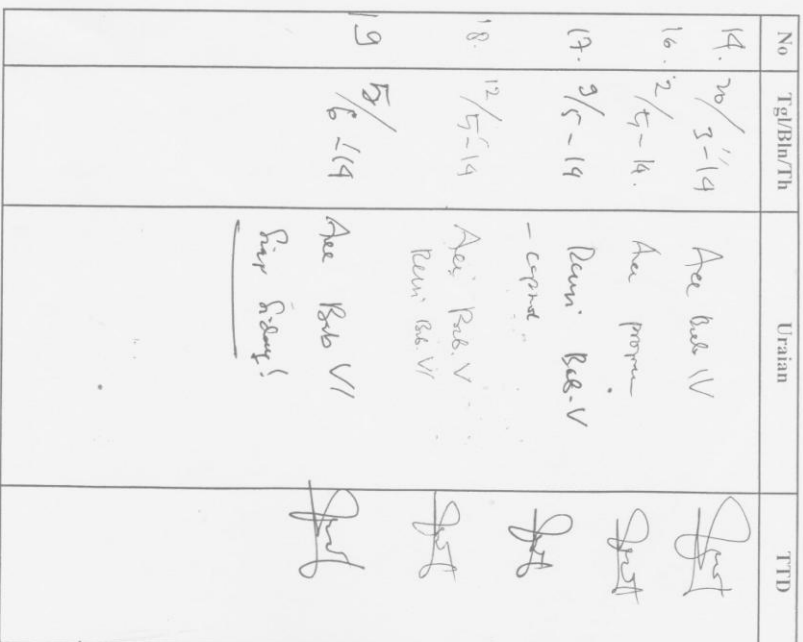 No Tgl/Bln/Th Uraian TTD
14. 20/3-'14 Acc Bab IV
16. 2/5-14. Acc program
17. 9/5-14 Revisi Bab-V
18. 12/5-14 Acc Bab. V
Revisi Bab. VI
19 5/6-14 Acc Bab VI
Siap Sidang!